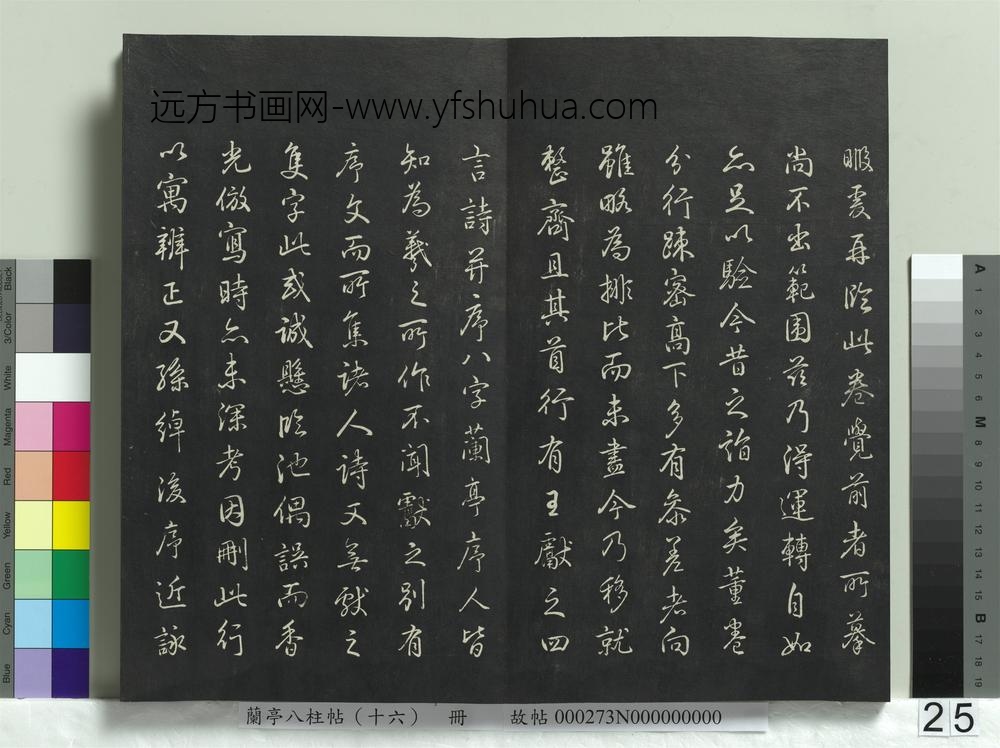 远方书画网-www.yfshuhua.com
暇更再臨此卷覺前者所摹
尚不出範圍茲乃得運轉自如
亦足以驗今昔之詣力矣董卷
分行疎密高下多有參差者向
雖略為排比而未盡今乃移就
整齊且其首行有王獻之四
言詩并序八字蘭亭序人皆
知為羲之所作不聞獻之別有
序文而所集諸人詩又無獻之
隻字此或誠懸臨池偶誤而香
光倣寫時亦未深考因刪此行
以寓辨正又孫綽後序近詠
蘭亭八柱帖（十六） 冊 故帖 000273N000000000
25
Black
3/Color
White
Magenta
Red
Yellow
Green
Cyan
Blue
A
1
2
3
4
5
6
M
8
9
10
11
12
13
14
15
B
17
18
19